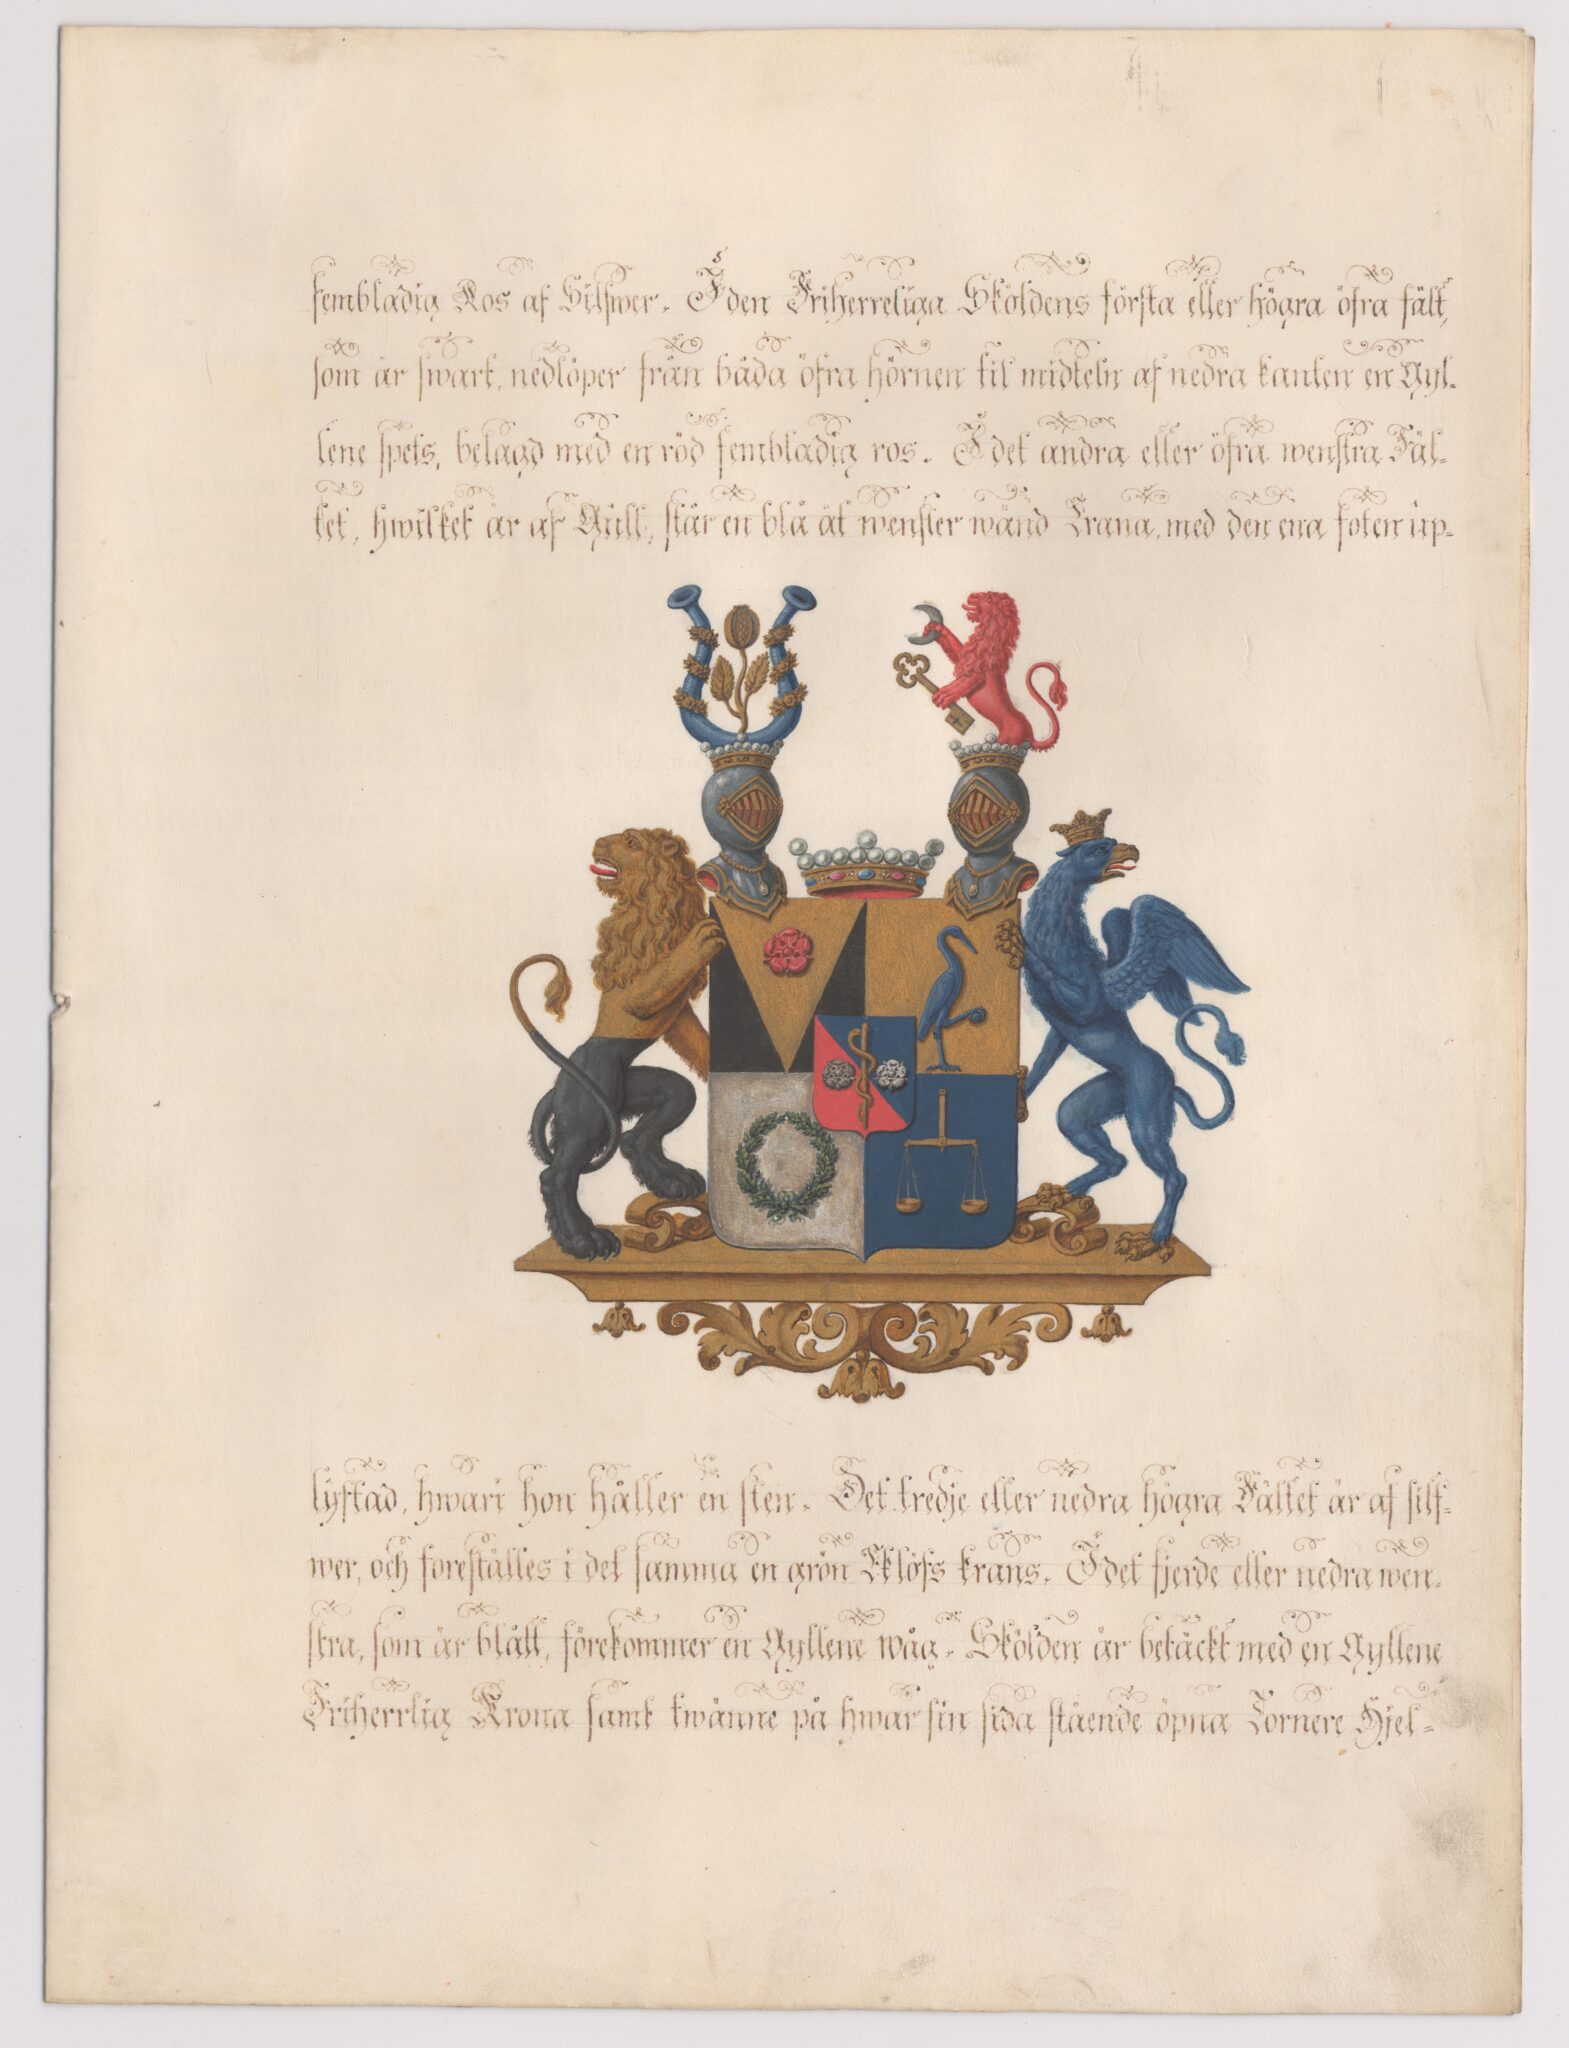 fembladig Ros af Silfwer. I den Friherreliga Sköldens första eller högra öfra fält,
som är swart, nedlöper från båda öfra hörnen til midteln af nedra kanten en Gyl-
lene spets, belagd med en röd fembladig ros. I det andra eller öfra wenstra Fäl-
tet, hwilket är af Gull, står en blå åt wenster wänd Trana, med den ena foten up-
lyftad, hwari hon håller en sten. Det tredje eller nedra högra Fältet är af silf-
wer, och föreställes i det samma en grön Eklöfs krans. I det fjerde eller nedra wen-
stra, som är blått, förekommer en Gyllene wåg. Skölden är betäckt med en Gyllene
Friherrlig Krona samt twänne på hwar sin sida stående öpna Tornere Hjel-